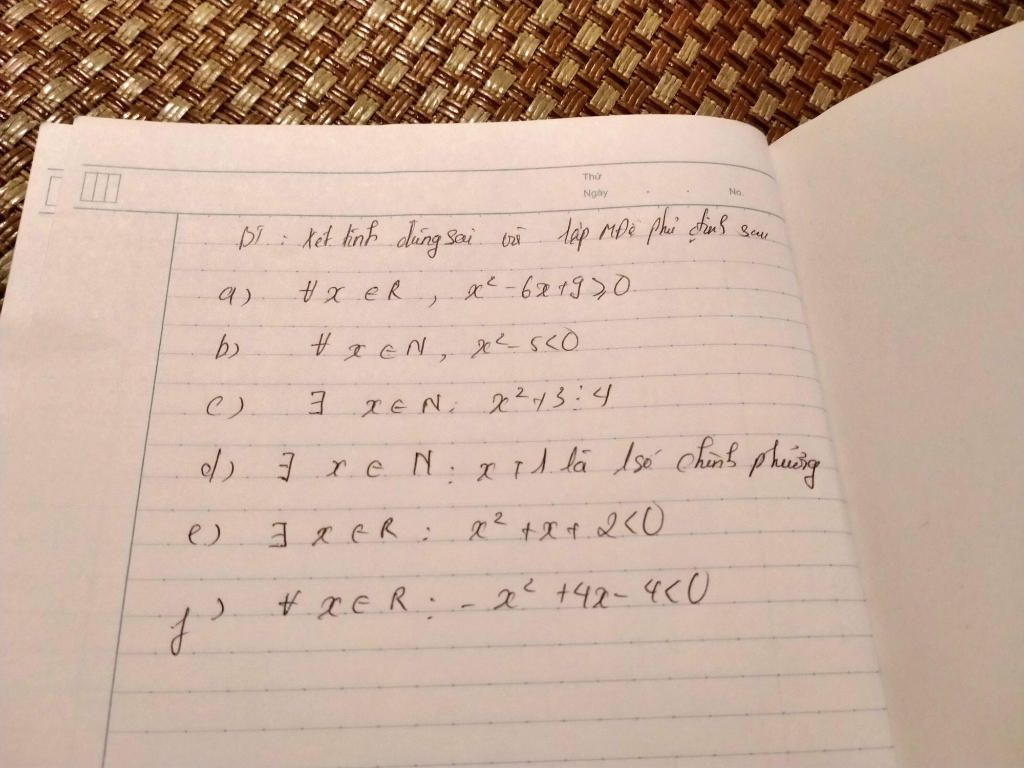 Thứ
Ngày No.
B1 : Xét tính đúng sai và lập MĐề phủ định sau
a) ∀ x ∈ R , x² - 6x + 9 ≥ 0
b) ∀ x ∈ N , x² - 5 < 0
c) ∃ x ∈ N : x² + 3 ⋮ 4
d) ∃ x ∈ N : x + 1 là 1 số chính phương
e) ∃ x ∈ R : x² + x + 2 < 0
f) ∀ x ∈ R : - x² + 4x - 4 < 0